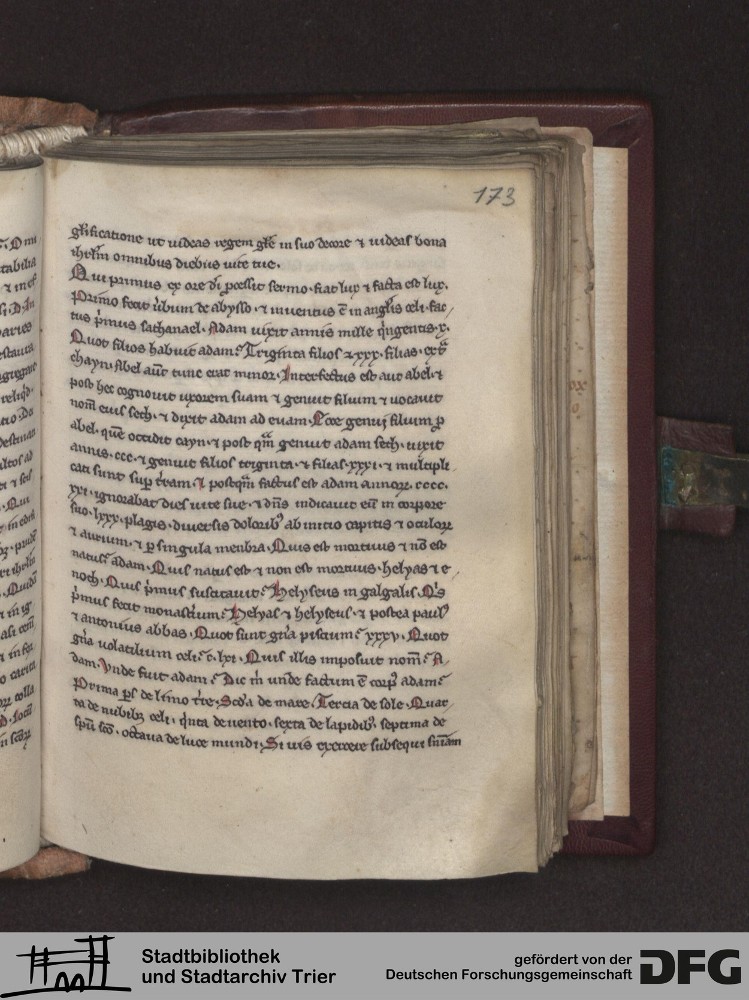 173
glificatione ut uideas regem glẽ in suo decore ⁊ uideas bona
ihrlm̃ omnibus diebus uite tue.
Qui primus ex ore dĩ ꝓcessit sermo. fiat lux ⁊ facta est lux.
Primo fecit ũbum de abysso. ⁊ inuentus ẽ in anglis celi. fac
tus p̃mus sathanael. Adam uixit annis mille q̃ngentis. x.
Quot filios habuit adam. Triginta filios ⁊ xxx. filias.
chayn. Abel aũt tunc erat minor. Interfectus est aut abel. ⁊
post hec cognouit uxorem suam ⁊ genuit filium ⁊ uocauit
nom̃ eius seth. ⁊ dixit adam ad euam. Ecce genui filium ꝓ
abel. quẽ occidit cayn. ⁊ post qm̃ genuit adam seth. uixit
annis. ccc. ⁊ genuit filios triginta. ⁊ filias. xxxi. ⁊ multipli
cati sunt sup̃ t̃ram. ⁊ postqm̃ factus est adam annoꝝ. cccc.
xxi. ignorabat dies uite sue. ⁊ dñs indicauit eũ in corpore
suo. lxxx. plagis. diuersis dolorib⁹ ab initio capitis ⁊ oculoꝝ
⁊ aurium. ⁊ ꝑ singula menbra. Quis est mortuus ⁊ nõ est
natus. adam. Quis natus est ⁊ non est mortuus. helyas ⁊ e
noch. Quis p̃mus suscitauit. Helyseus in galgalis. Q̃s
p̃mus fecit monastium. Helyas ⁊ helyseus. ⁊ postea paul⁹
⁊ antonius abbas. Quot sunt gña piscium. xxxv. Quot
gña uolatilium celi. c. lxi. Quis illis imposuit nom̃. A
dam. Vnde fuit adam. Dic m̃ unde factum ẽ corp⁹ adam.
Prima ꝑs de limo t̃re. Scd̃a de mare. Tercia de sole. Quar
ta de nubib⁹ celi. q̃nta de uento. sexta de lapidib⁹. septima de
spũ sc̃o. octaua de luce mundi. Si uis exercere subsequi sñiam
Stadtbibliothek
und Stadtarchiv Trier
gefördert von der
Deutschen Forschungsgemeinschaft
DFG